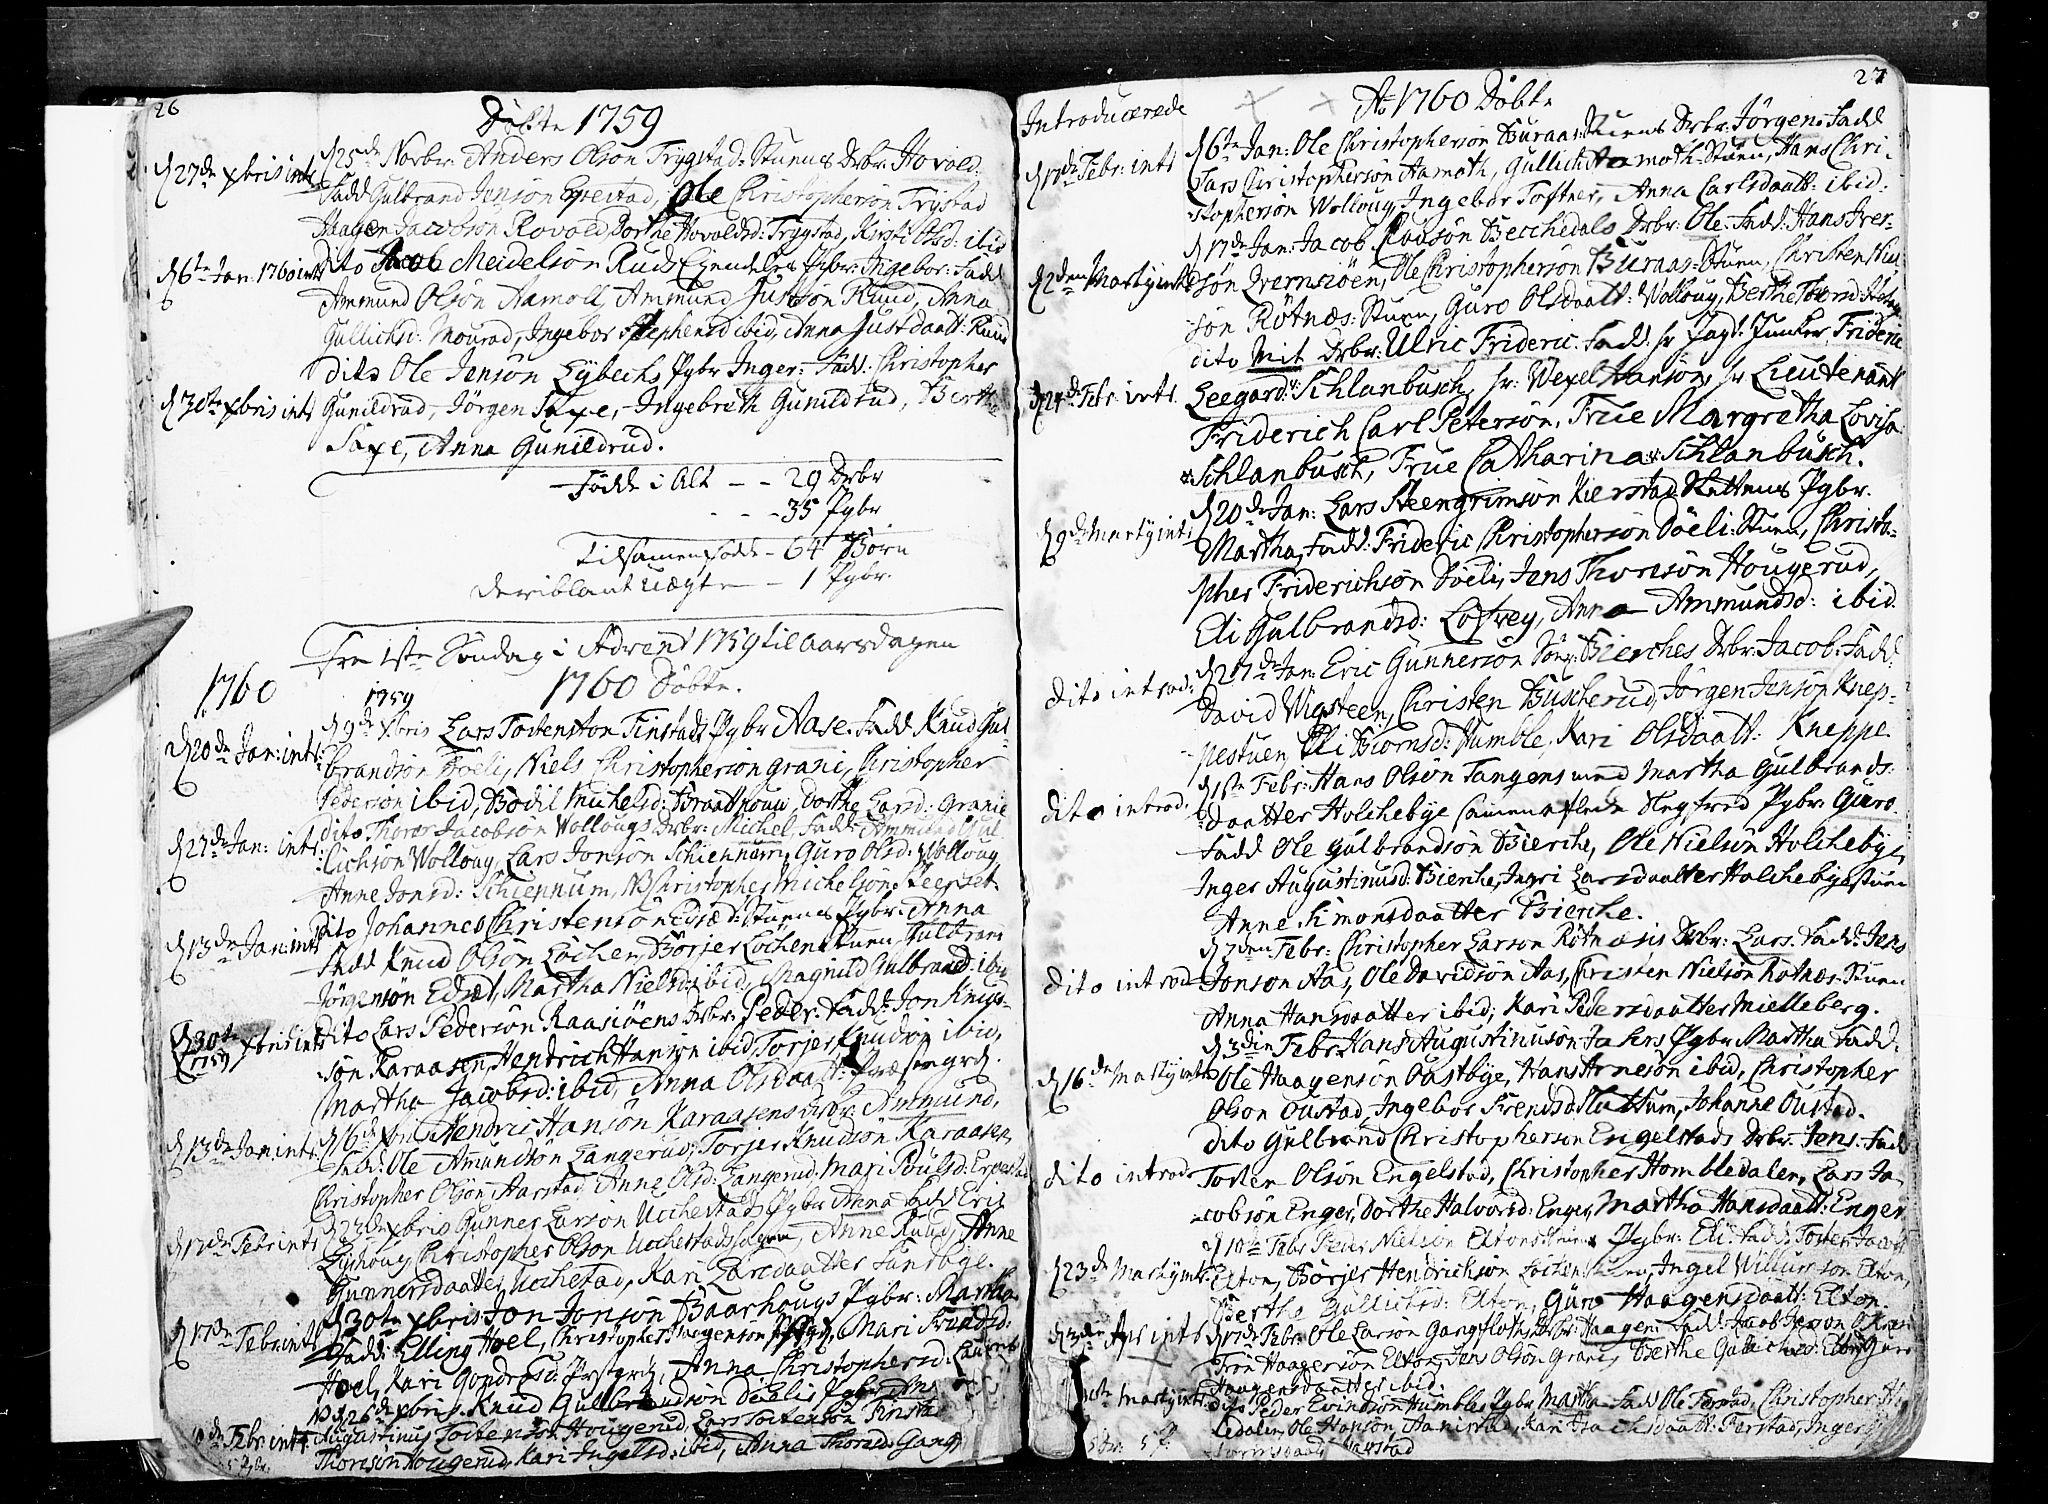 26
Döbte 1759
d 27de xbris intr
d 25de Novbr: Anders Olson Trygstad-Stuens Drbr: Hovold:
Fadd Gulbrand Jenson Epestad, Ole Christopherson Trystad
Haagen Jacobson Rovold, Dorthe Hovoldsd: Trygstad, Kirsti Olsd: ibid
d 6te Jan: 1760 intr
dito Jacob Meidelson Ruds Pybr: Ingebor: Fadd
Ammund Olson Aamoll, Ammund Justson Ruud, Anna
Gullichsd: Mourad, Ingebor Stephensd ibid, Anna Justdaatt: Ruud
d 30te xbris intr
dito Ole Jenson Eybechs Pybr Inger: Fadd: Christopher
Gunildrud, Jörgen Saxe, Ingebreth Gunildrud, Berthe
Saxe, Anna Gunildrud.
Födde i Alt - - 29 Drbr
- - - 35 Pybr
Tilsamen födde - 64 Börn
deriblant uægte - 1 Pybr.
Fra 1ste Söndag i Advent 1759 til Aarsdagen
1760
1759
1760 Döbte.
d 20de Jan: intr:
d 9de xbris Lars Tostenson Finstads Pybr Aase. Fadd Knud Gul-
brandson Döeli, Niels Christopherson grani, Christopher
Pederson ibid, Bodil Michelsd: Braathouw, Dorthe Larsd: Granie
d 27de Jan: intr.
dito Thorer Jacobson Vollougs Drbr: Michel, Fadd: Ammund Gul-
lichson Wolloug, Lars Jonson Schiennum, Guro Olsd: Wolloug
Anne Jonsd: Schiennum, NB Christopher Michelson Skeerset
d 13de Jan: intr
dito Johannes Christenson Edsæd-Stuenes Pybr. Anna
Fadd Knud Olson Löchen, Börjer Löchenstuen, Guldbrand
Jörgenson Edsæt, Martha Nielsd: ibid, Magnild Gulbrandsd: ibid
d 30te xbris intr
1759
dito Lars Pederson Raasiöens Drbr: Peder: Fadd: Jon Knud-
son Karaasen, Hendrich Hanson ibid, Torjer Knudson ibid,
Martha Jacobsd: ibid, Anna Olsdaatt: Præstegrd.
d 13de Jan: intr.
d 16de xbris Hendric Hanson Karaasens Drbr: Ammund,
Fadd: Ole Amundson Langerud, Torjer Knudson Karaasen
Christopher Olson Aarstad, Anne Olsd: Langerud, Mari Poulsd: Erpestad
d 17de Febr intr
d 23de xbris Gunner Larson Ucchestads Pybr Anna Fadd Eric
Lyshoug, Christopher Olson Ucchestadshagen, Anne Ruud, Anne
Gunnersdaatter Ucchestad, Kari Larsdaatter Sandbye.
d 17de Febr: intr
d 30te xbris Jon Jonson Baarhougs Pybr: Martha.
Fadd: Elling Hoel, Christopher Haagenson, Mari Frendsd:
Hoel, Kari Gundersd: Prstgrd, Anna Christophersd:
NB d 26de xbris Knud Gulbrandson Döelis Pybr:
10de Febr: intr
Augustinus Tostenson Hougerud, Lars Tostenson Finstad
Thoreson Hougerud, Kari Ingelsd: ibid, Anna Thoresd: Gang
5 Pybr.
27
Introducerede
Ao 1760 Döbte
d 17de Febr: intr
d 6te Jan: Ole Christopherson Buraas-Stuens Drbr: Jörgen: Fadd
Lars Christopherson Aamoth, Gullich Aamoth-Stuen, Hans Chri-
stopherson Wolloug, Ingebor Toftner, Anna Carlsdaatt: ibid:
d 2den Marty intr
d 17de Jan: Jacob Povson Becchedals Drbr: Ole: Fadd: Hans Iver-
son Qvernsiöen, Ole Christopherson Buraas-Stuen, Christen Niel
son Rötnæs-Stuen, Guro Olsdaatt: Wolloug, Berthe Thorsd:
d 24de Febr: intr.
dito Mit Drbr: Ulric Frideric. Fadd: hr Jagt-Junker Frideric
Leegard v: Schlanbusch, hr: Wexel Hanson, hr Lieutenant
Friderich Carl Peterson, Frue Margretha Lovisa
v: Schlanbusch, Frue Catharina v: Schlanbusch.
d 9de Marty intr
d 20de Jan: Lars Steengrimson Kierstad Skattens Pybr.
Martha, Fadd: Frideric Christopherson Döeli-Stuen, Christo-
pher Friderichson Döeli, Jens Thoreson Hougerud,
Eli Gulbrandsd: Lofrey, Anna Ammundsd: ibid.
dito introd:
d 27de Jan: Eric Gunnerson Bierches Drbr: Jacob: Fadd:
David Vigsteen, Christen Buscherud, Jörgen Jenson Knep-
pestuen, Eli Biornsd: Humble, Kari Olsdaatt: Kneppe.
dito introd.
d 1ste Febr: Hans Olson Tangens med Martha Gulbrands-
daatter Holchebye Pybr: Guro.
Fadd Ole Gulbrandson Bierche, Ole Nielson Holchebye,
Inger Augustinusd: Bierche, Ingri Larsdaatter Holchebyestuen
Anne Simonsdaatter Bierche.
dito introd
d 7den Febr: Christopher Larson Rötnæsis Drbr: Lars. Fadd: Jens
Jonson Aas, Ole Davidson Aas, Christen Nielson Rotnæs-Stuen
Anna Hansdaatter ibid, Kari Pedersdaatter Mielleberg.
d 16de Marty intr
d 3die Febr: Hans Augustinuson Fa hrs Pybr Martha Fadd:
Ole Haagenson Oustbye, Hans Arneson ibid, Christopher
Olson Oustad, Ingebor Frendsd: Slattum, Johanne Oustad.
dito introd
dito Gulbrand Christopherson Engelstads Drbr: Jens: Fadd
Tosten Olson Engelstad, Christopher Hombledalen, Lars Ja-
cobson Enger, Dorthe Halvorsd: Enger, Martha Hansdaatt: Enger
d 23de Marty intr
d 10de Febr Peder Nielson Eltonstuens Pybr: Eli: Fadd: Tosten Jacobs
Elton, Börjer Hendrichson Löchenstuen, Ingel Willumson Elton,
Berthe Gullichsd: Elton, Guro Haagensdaatt: Elton.
d 3die Apr intr
d 17de Febr: Ole Larson Gangfloths Drbr: Haagen: Fadd: Jacob Iverson
Iver Haagenson Elton, Jens Olson Grani, Berthe Gullichsd: Elton, Guro
Haagensdaatter ibid.
Marty intr
dito Peder Evindson Humbles Pybr Martha Fadd Ole Taxrud, Christopher Hom
bledalen, Ole Hanson, Kari daatt: Harstad, Inger
Harstad